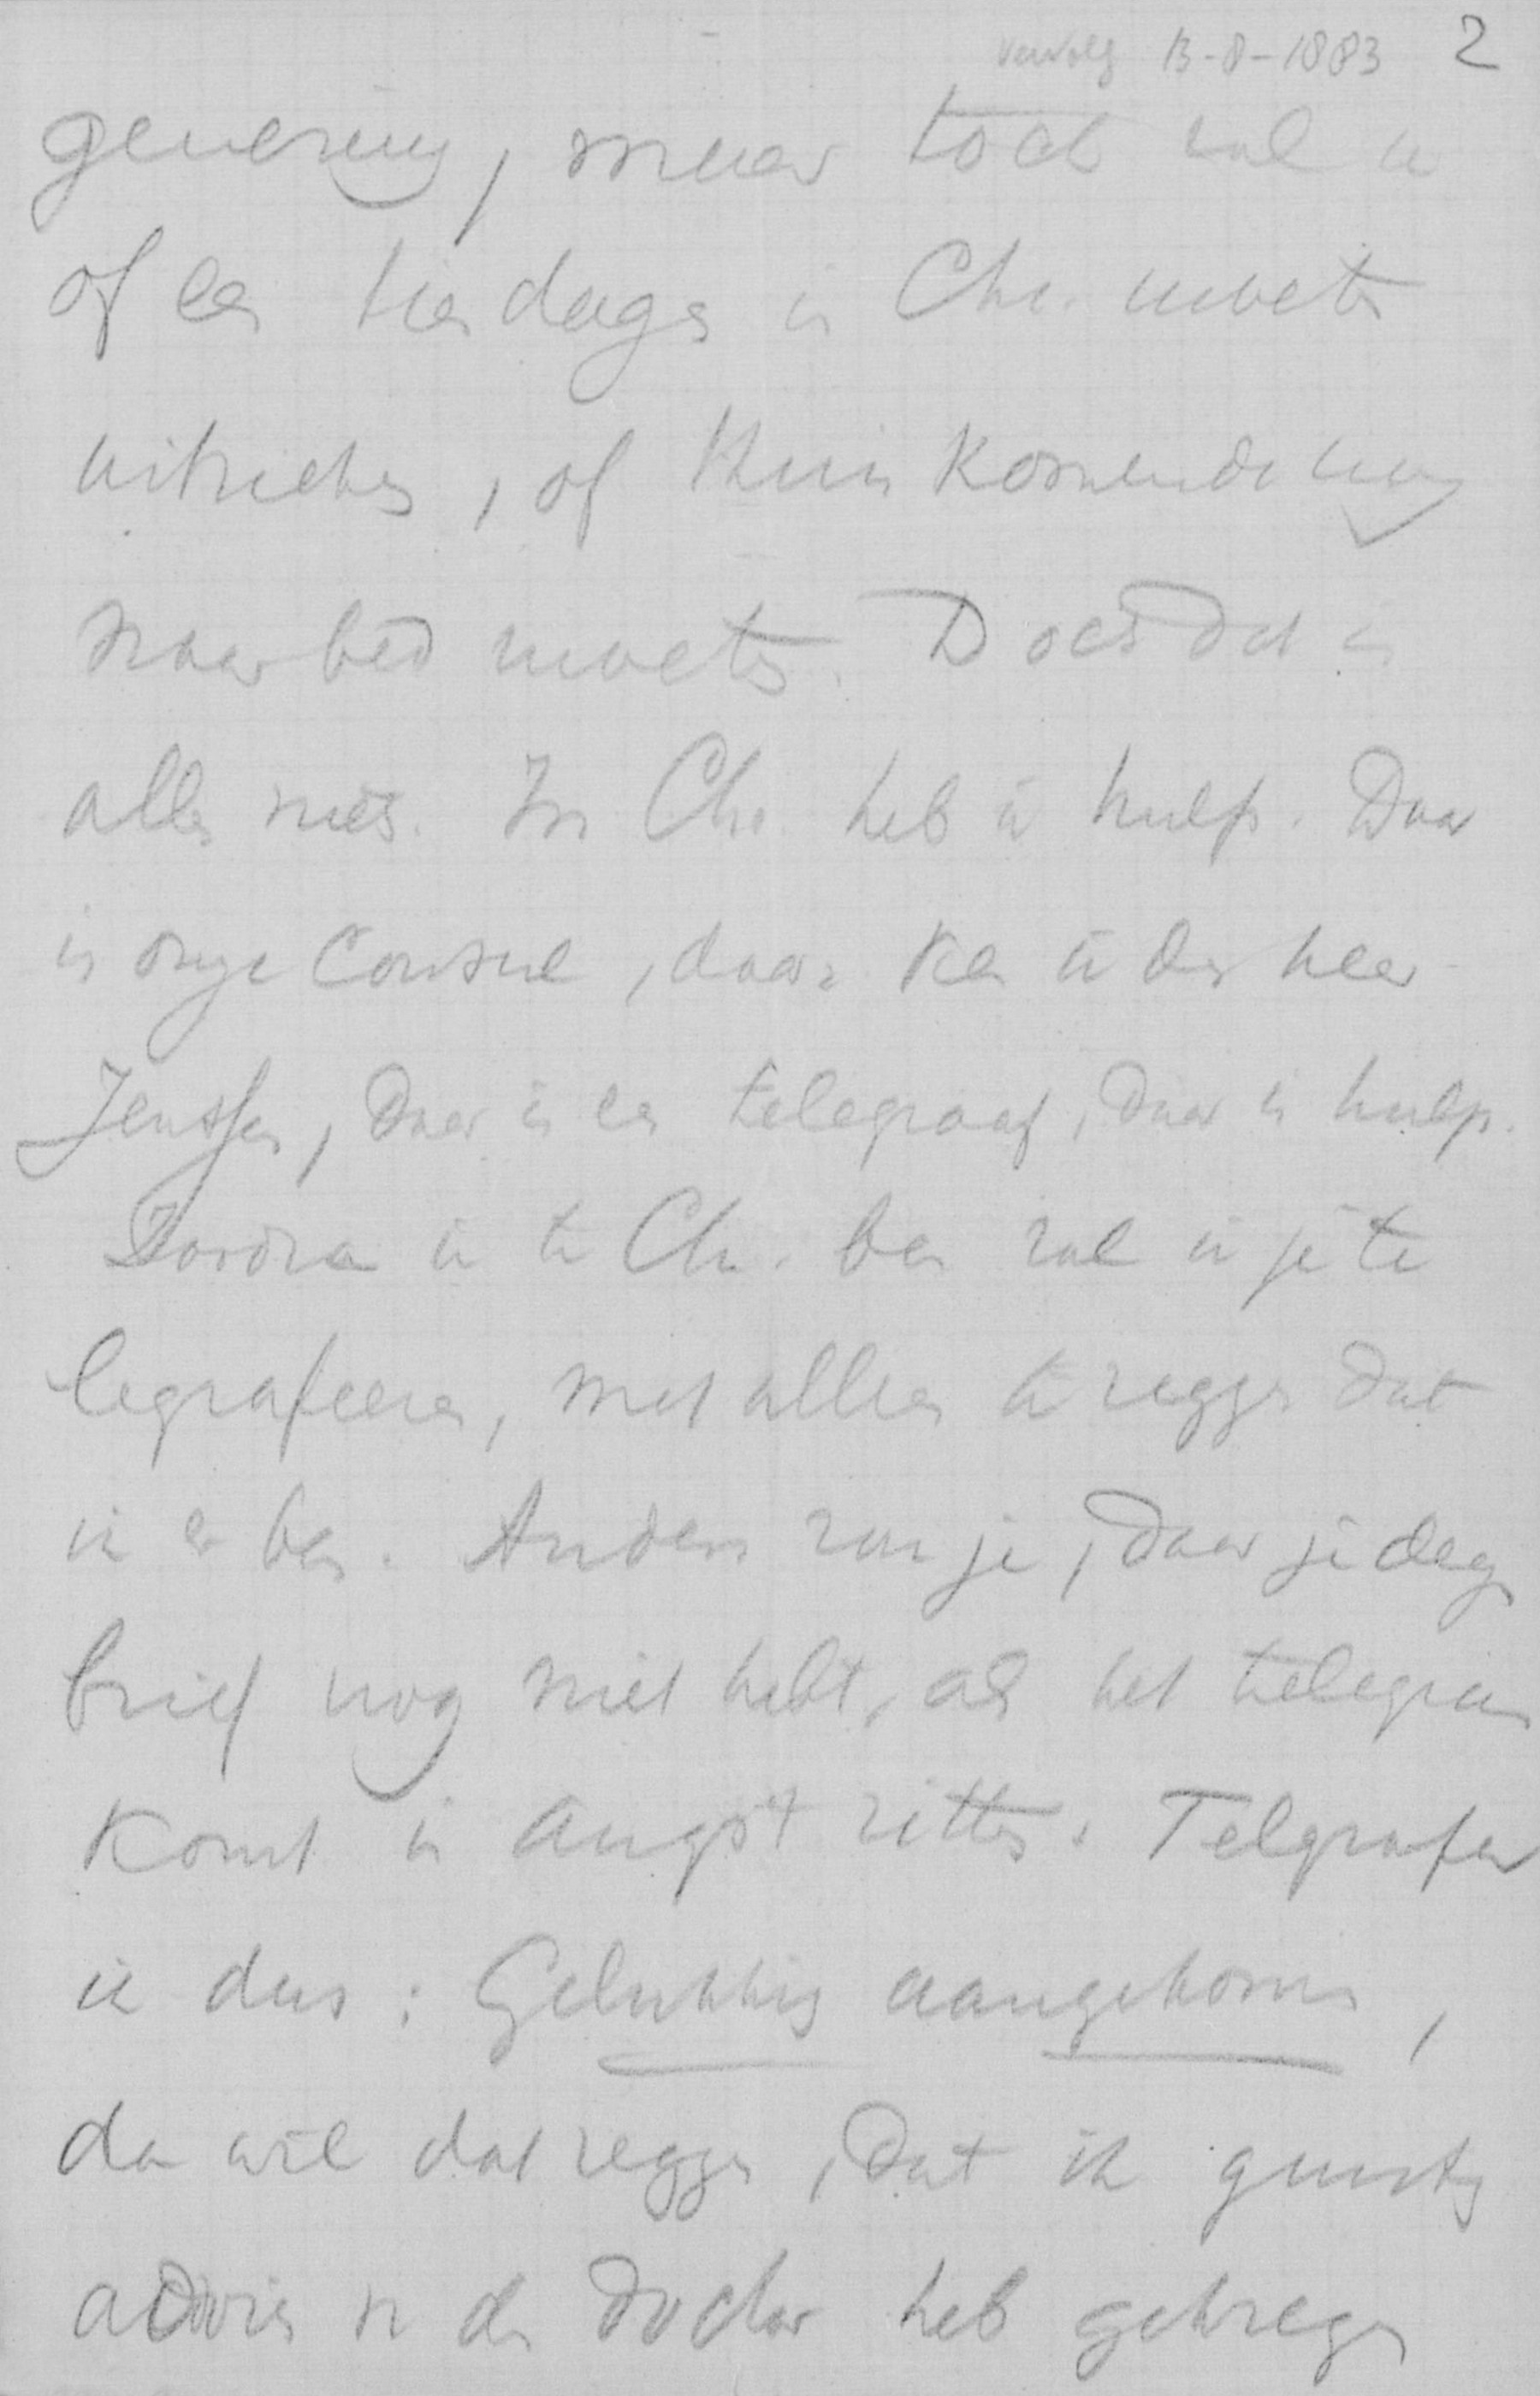 vervolg 13-8-1883 2
genezing, maar toch zal ik
of een tien dagen in Chr. moeten
uitrusten, of thuis komende nog
naar bed moeten. Doch dat is
alles niets. In Chr. heb ik hulp. Daar
is onze Consul, daar ken ik den heer
Jenssen, daar is een telegraaf, daar is hulp.
Zoodra ik te Chr. ben zal ik je te
legrafeeren, met alleen te zeggen dat
ik er ben. Anders zou je, daar je dezen
brief nog niet hebt, als het telegram
komt in angst zitten. Telgrafeer
ik dus: Gelukkig aangekomen,
dan wil dat zeggen, dat ik gunstig
advies v den doctor heb gekregen